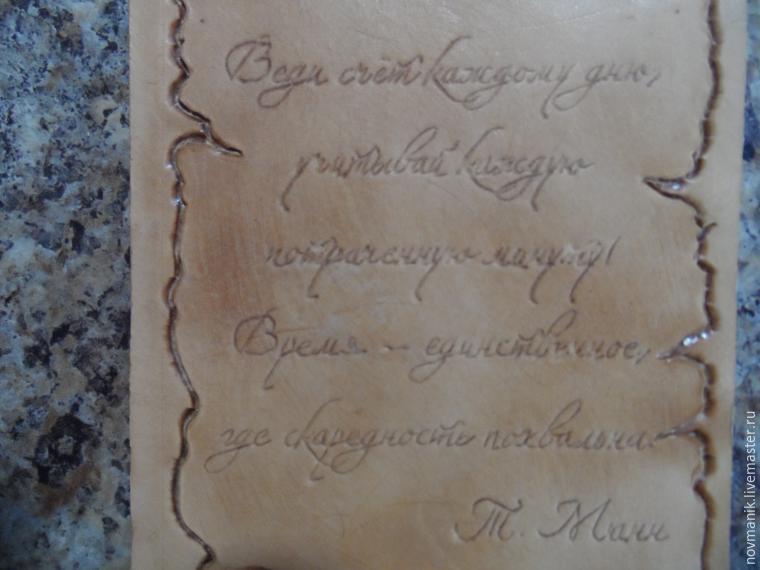 Веди счёт каждому дню,
учитывай каждую
потраченную минуту!
Время - единственное,
где скаредность похвальна.
Т. Манн
novmanik.livemaster.ru